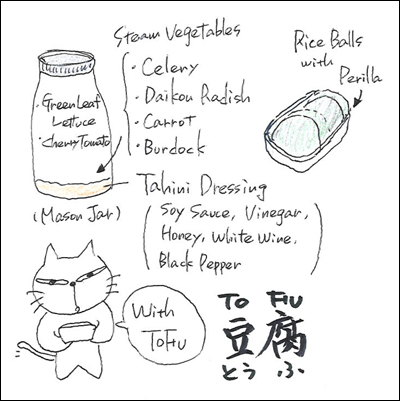 Steam Vegetables
・Celery
・Daikou Radish
・Carrot
・Burdock
Rice Balls
with
Perilla
・Green Leaf
Lettuce
・Cherry Tomato
(Mason Jar)
Tahini Dressing
(Soy Sauce, Vinegar,
Honey, White Wine,
Black Pepper)
With
ToFu
To Fu
豆腐
とうふ